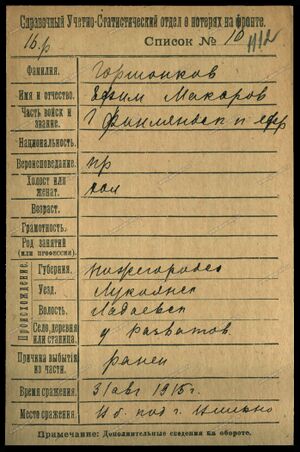 Справочный Учетно-Статистический отдел о потерях на фронте.
16.р Список № 10
Фамилия. Горшонков
Имя и отчество. Ефим Макаров
Часть войск и звание. 7 Финляндск п ефр
Национальность.
Вероисповедание. пр
Холост или женат. хол
Возраст.
Грамотность.
Род занятий (или профессии).
Происхождение:
Губерния. Нижегородск
Уезд. Лукоянск
Волость. Ладаевск
Село, деревня или станица. Разватов
Причина выбытия из части. ранен
Время сражения. 31 авг 1915 г.
Место сражения. под г.
Примечание: Дополнительные сведения на обороте.